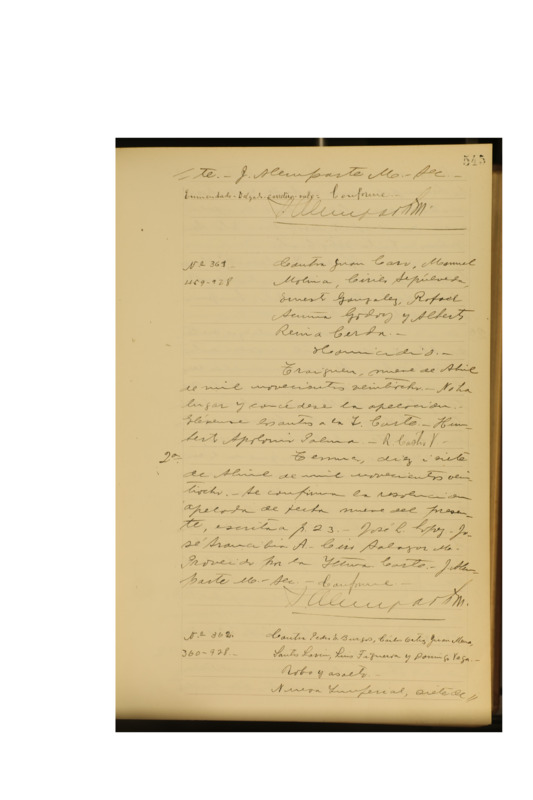 545
te. - J. Alemparte M. - Sec. -
Conforme. -
Nº 361. Contra Juan Caro, Manuel
459-928 Molina, Cirilo Sepúlveda,
Ernesto Gonzalez, Rafael
Acuña Godoy y Alberto
Cerda. -
Homicidio. -
Traiguen, nueve de Abril
de mil novecientos veintiocho. - No ha
lugar y concédese la apelacion. -
Elévense los autos a la I. Corte. - Hum-
berto Apolonio Palma - R. Castro V. -
2ª Temuco, diez i siete
de Abril de mil novecientos vein
tiocho. - Se confirma la resolucion
apelada de fecha nueve del presen-
te, escrita a f. 23. - José L. Lopez. - Jo-
sé Arancibia A. - Luis Salazar M.
Proveido por la Iltma Corte. - J. Alem-
parte M. - Sec. - Conforme -
Nº 362. Contra Pedro Burgos, Juan Mora,
360-928. Luis Figueroa y Domingo Vega. -
Robo y asalto. -
Nueva Imperial, siete de